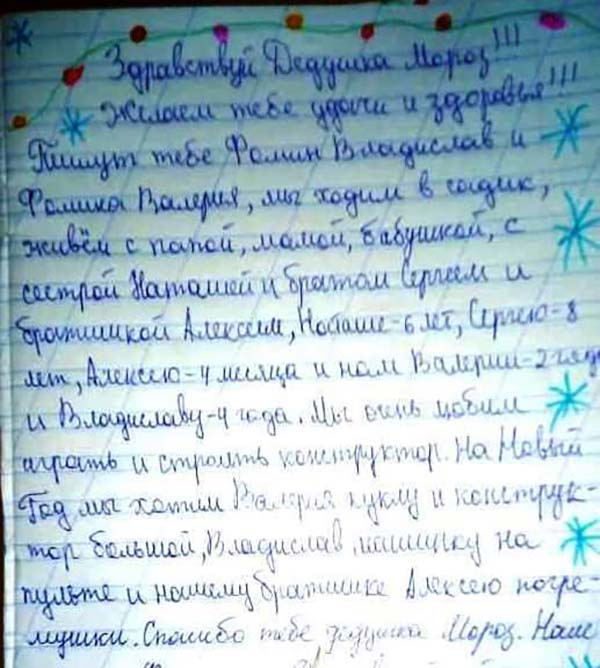 Здравствуй Дедушка Мороз!!!
Желаем тебе удачи и здоровья!!!
Пишут тебе Фомин Владислав и
Фомина Валерия, мы ходим в садик,
живём с папой, мамой, бабушкой, с
сестрой Наташей и братом Сергеем и
братишкой Алексеем, Наташе-6 лет, Сергею-8
лет, Алексею-4 месяца и нам Валерии-2 года
и Владиславу-4 года. Мы очень любим
играть и строить конструктор. На Новый
Год мы хотим Валерия куклу и конструк-
тор большой, Владислав машинку на
пульте и нашему братишке Алексею погре-
мушки. Спасибо тебе дедушка Мороз. Наше